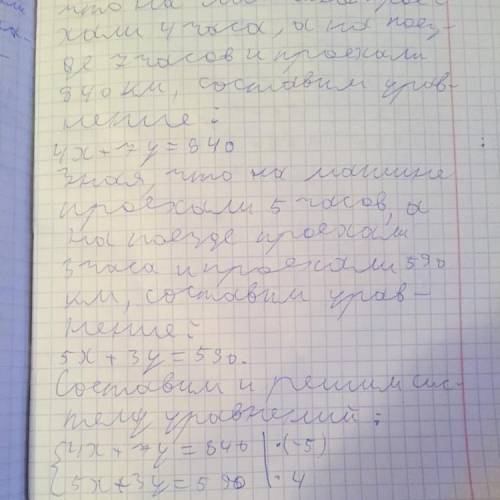 хали 4 часа, а на поез-
де 7 часов и проехали
840 км, составим урав-
нение:
4x+7y=840
Зная, что на машине
проехали 5 часов, а
на поезде проехали
3 часа и проехали 590
км, составим урав-
нение:
5x+3y=590.
Составим и решим сис-
тему уравнений:
{4x+7y=840 | ·(-5)
{5x+3y=590 | ·4